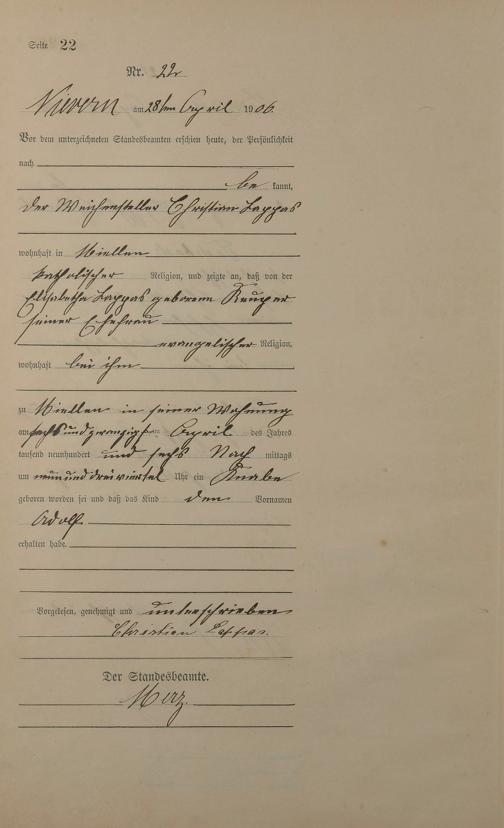 Seite 22
Nr. 22
Nievern am 28ten April 1906
Vor dem unterzeichneten Standesbeamten erschien heute, der Persönlichkeit
nach
be kannt,
der Weichensteller Christian Lappas
wohnhaft in Miellen
katholischer Religion, und zeigte an, daß von der
Elisabetha Lappas geborenen Keuper
seiner Ehefrau
evangelischer Religion,
wohnhaft bei ihm
zu Miellen in seiner Wohnung
am sechsundzwanzigsten April des Jahres
tausend neunhundert und sechs Nach mittags
um neun und dreiviertel Uhr ein Knabe
geboren worden sei und daß das Kind den Vornamen
Adolf
erhalten habe.
Vorgelesen, genehmigt und unterschrieben
Christian Lappas.
Der Standesbeamte.
Merz.